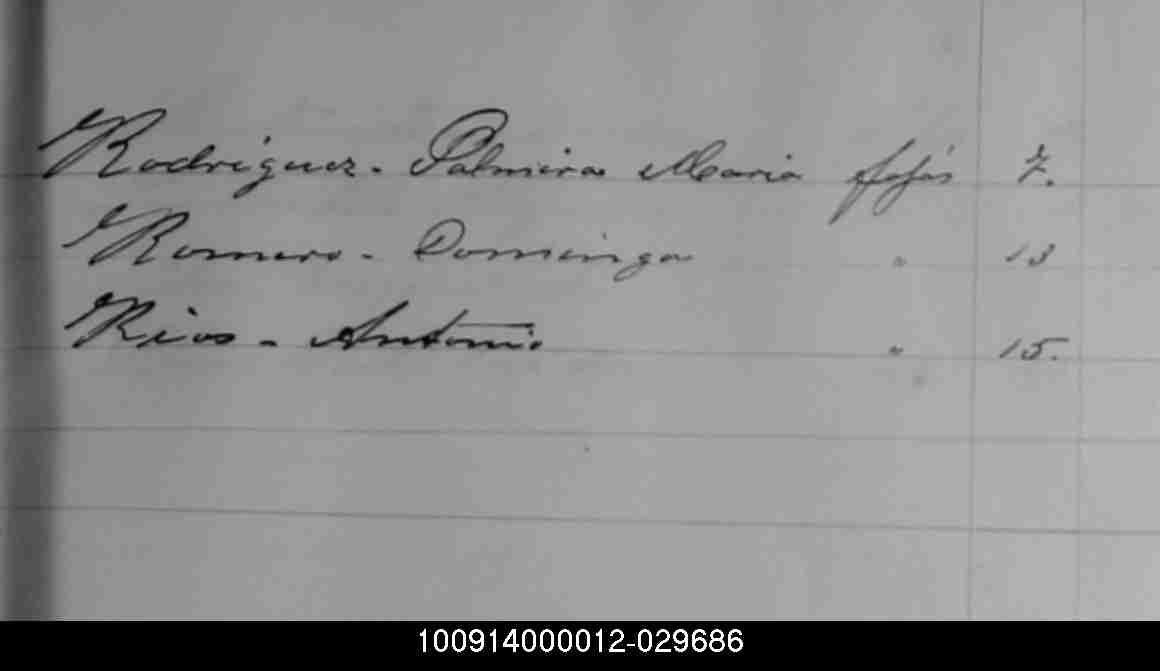 Rodriguez - Palmira Maria fojas 7.
Romero - Dominga " 13
Rios - Antonio " 15.
100914000012-029686